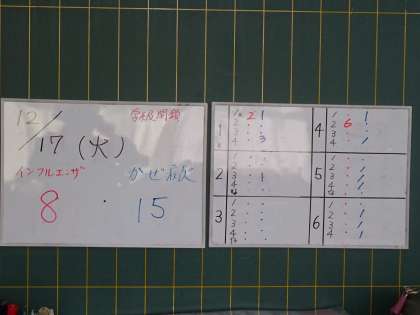 12/17(火)
学級閉鎖
インフルエンザ
かぜ症状
8 ・ 15
1
1 ・ 2 1
2 ・ ・
3 ・ ・
4 ・ 3
2
1 ・ ・
2 ・ ・
3 ・ 1
4 ・ ・
3
1 ・ ・
2 ・ ・
3 ・ ・
4 ・ ・
4
1 ・ 1
2 6
3 ・ 1
4 ・ 1
5
1 ・ ・
2 ・ 1
3 ・ 1
4 ・ 1
6
1 ・ ・
2 ・ 1
3 ・ 1
4 ・ 1